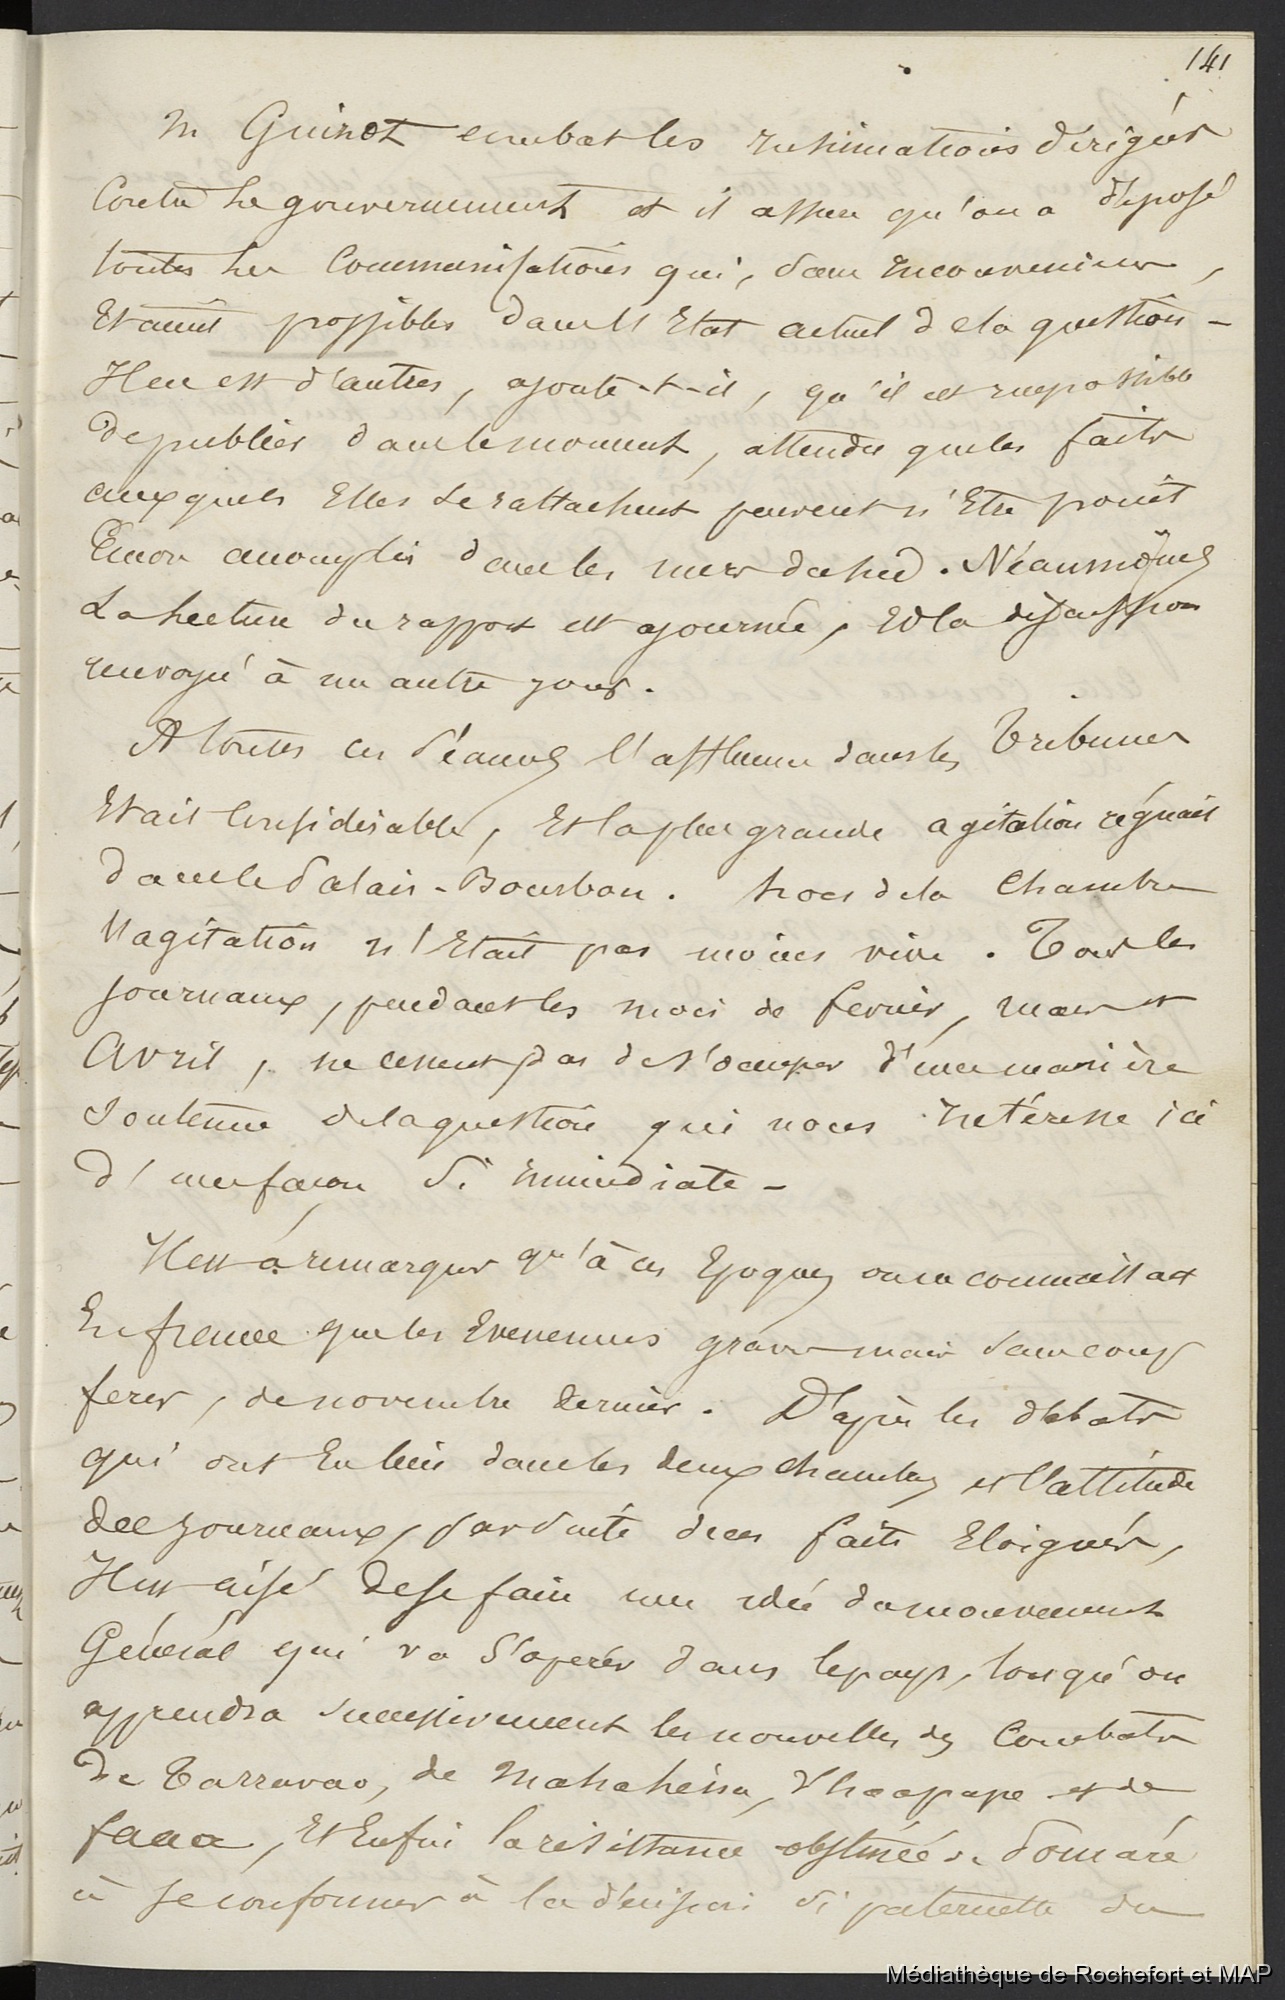 141
M Guizot combat les insinuations dirigées
Contre le gouvernement et il assure qu'on a déposé
toutes les Communications qui, sans inconvenient,
Etaient possibles dans l'Etat actuel de la question -
Il en est d'autres, ajoute-t-il, qu'il est impossible
de publier dans le moment, attendu que les faits
auxquels Elles se rattachent peuvent n'Etre point
Encor accomplis dans les mers du sud. Néanmoins
La Lecture du rapport est ajournée, Et la discussion
renvoyé à un autre jour.
A toutes ces séances l'affluence dans les Tribunes
Etait Considérable, Et la plus grande agitation régnait
dans le Palais-Bourbon. hors de la Chambre
l'agitation n'Etait pas moins vive. Tous les
journaux, pendant les mois de fevrier, mars et
Avril, ne cessent pas de s'occuper d'une manière
Soutenue de la question qui nous intéresse ici
d'une façon si immédiate -
Il est à remarquer qu'à ces Epoques on ne connaissait
En france que les Evenemens graves mais sans coup
ferir, de novembre dernier. D'après les débats
qui ont Eu lieu dans les deux chambres et l'attitude
des journaux, par suite de ces faits Eloignés,
Il est aisé de se faire une idée du mouvement
Général qui va s'opérer dans le pays, lorsqu'on
apprendra successivement les nouvelles des Combats
de Tarravao, de Mahahéna, d'haapape et de
faaa, Et Enfin la résistance obstinée de Pomaré
à se conformer à la décision si paternelle du
Médiathèque de Rochefort et MAP